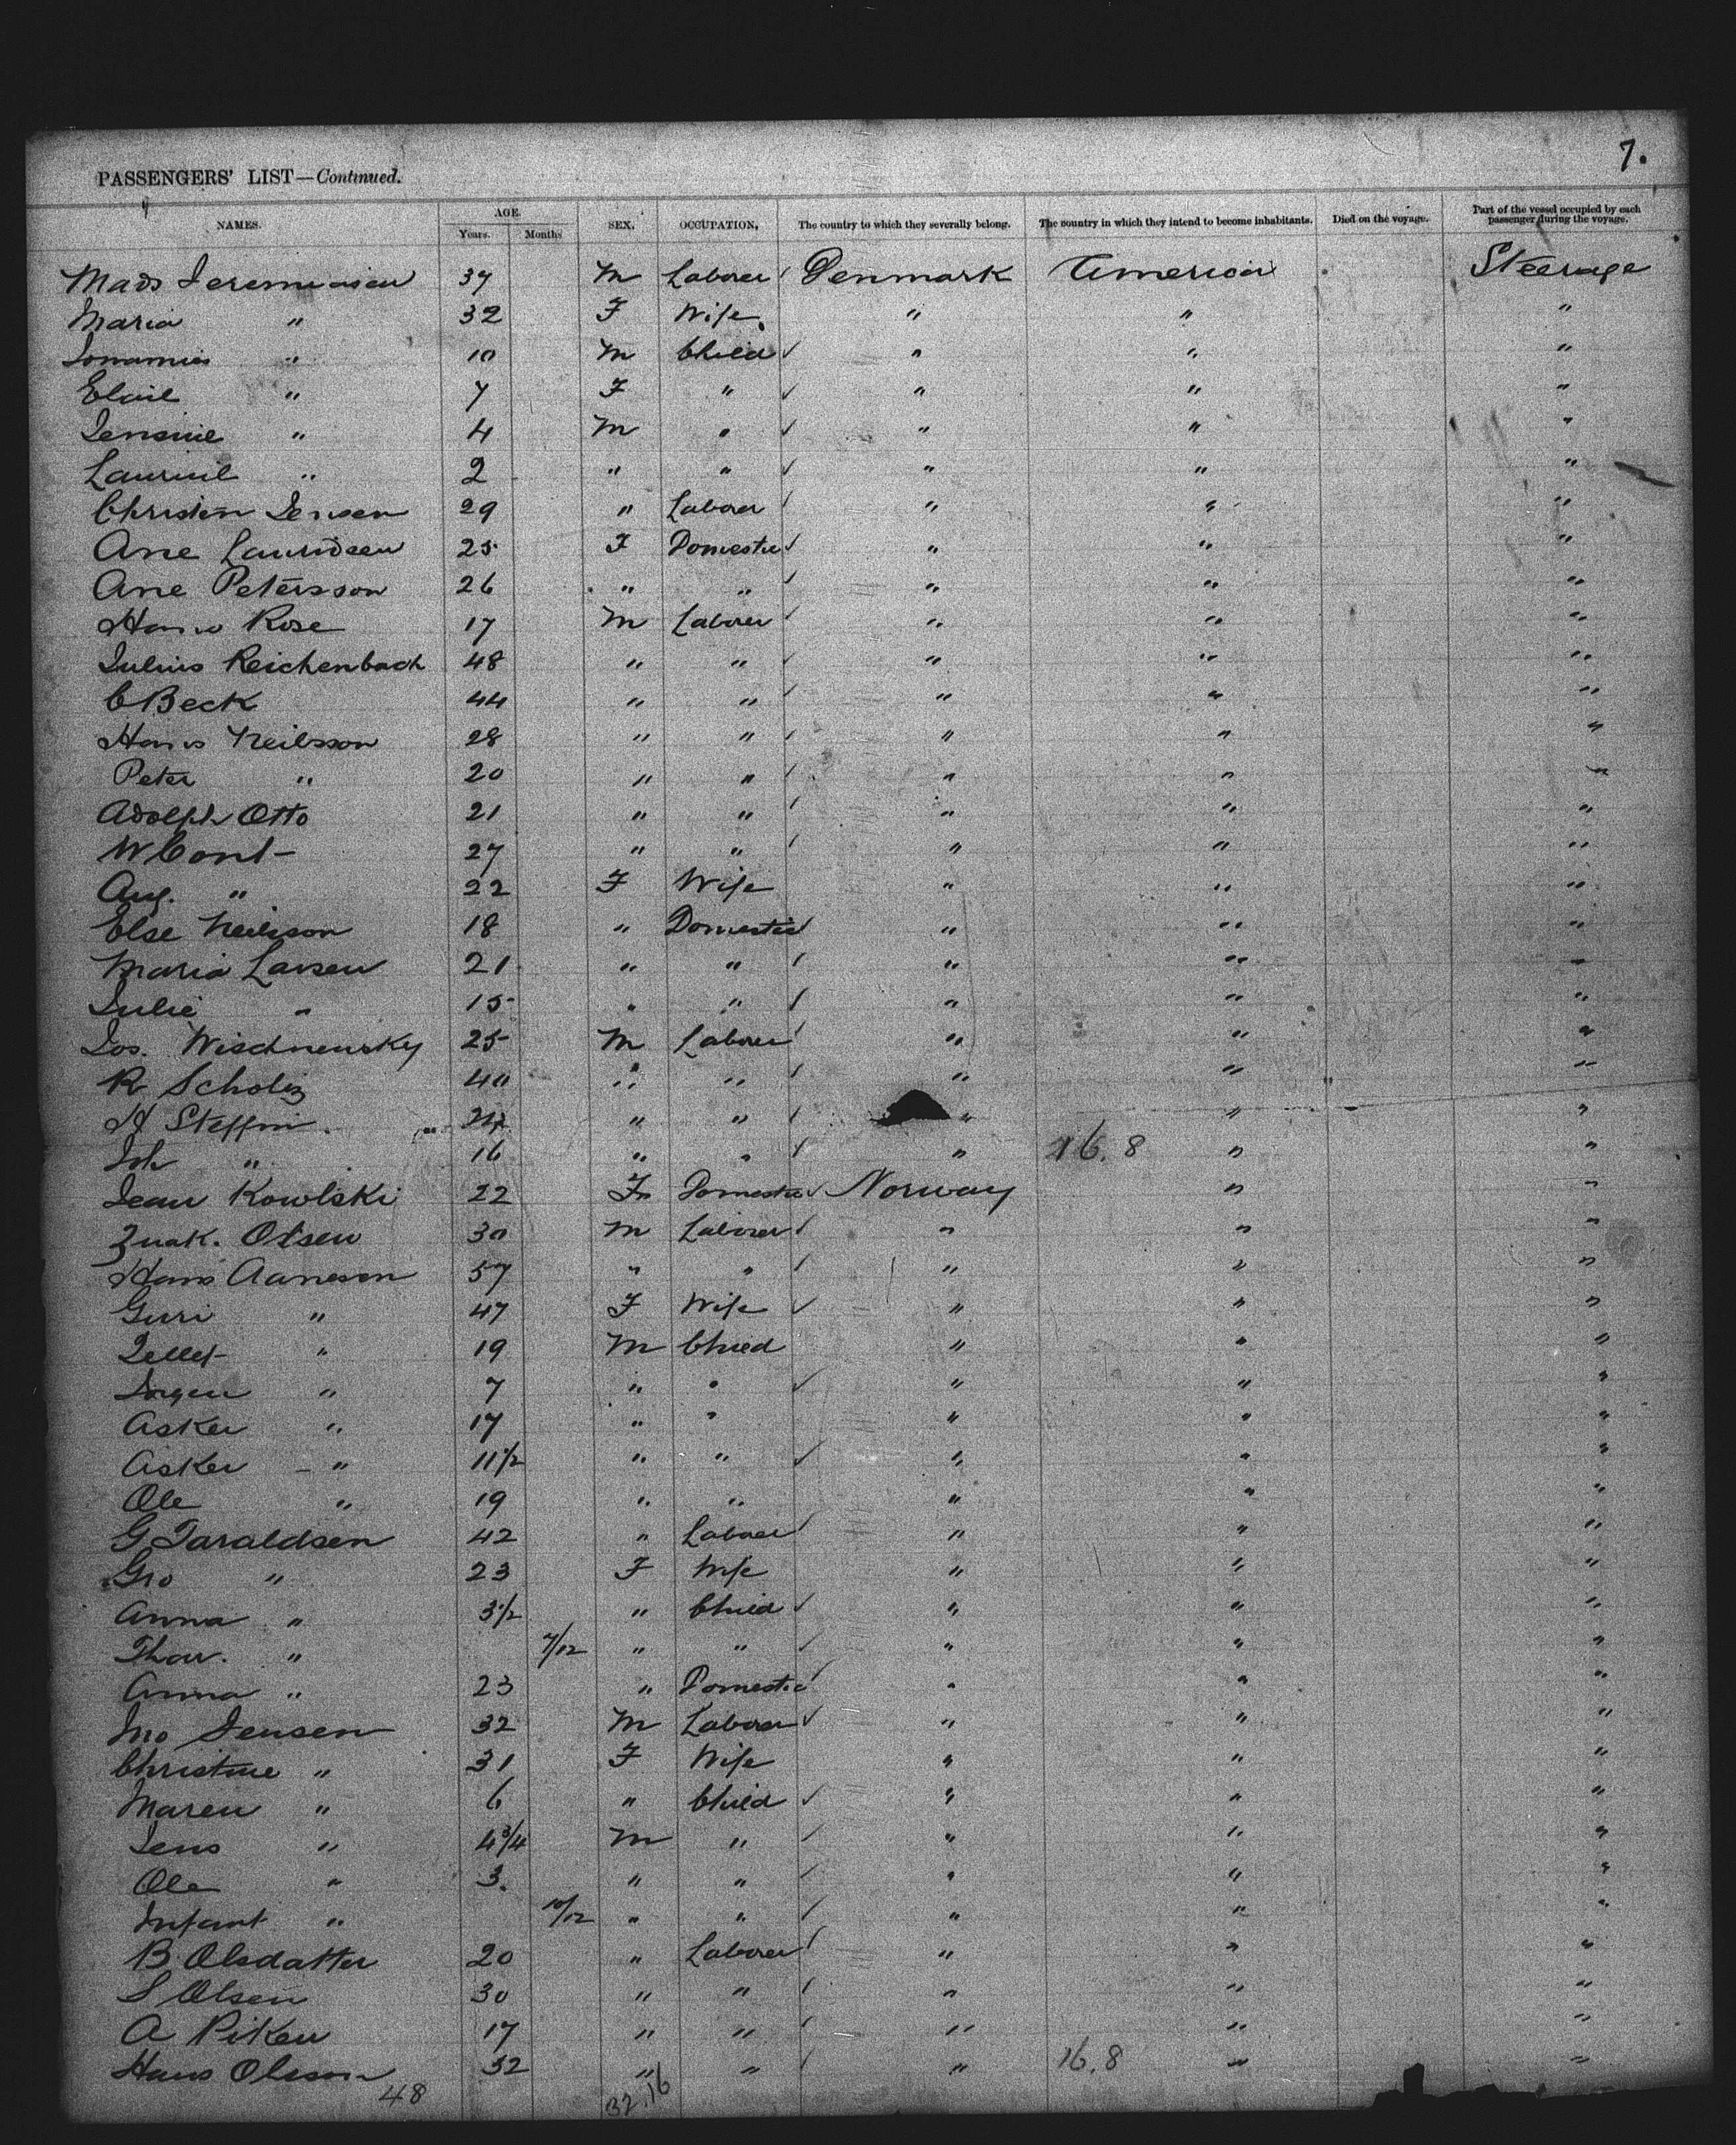 7.
PASSENGERS' LIST—Continued.
NAMES. AGE. Years. Months SEX. OCCUPATION, The country to which they severally belong. The country in which they intend to become inhabitants. Died on the voyage. Part of the vessel occupied by each passenger during the voyage.
Mads Jeremiasen 37 M Laborer Denmark America Steerage
Maria " 32 F Wife " " "
" 10 M Child " " "
" 7 F " " " "
" 4 M " " " "
" 2 " " " " "
Christen Jensen 29 " Laborer " " "
Ane Lauridsen 25 F Domestic " " "
Ane Petersson 26 " " " " "
Hans Rose 17 M Laborer " " "
Julius Reichenbach 48 " " " " "
C Beck 44 " " " " "
Hans Neilsson 28 " " " " "
Peter " 20 " " " " "
Adolph Otto 21 " " " " "
W Cont 27 " " " " "
Aug. " 22 F Wife " " "
Else Neilsson 18 " Domestic " " "
Maria Larsen 21 " " " " "
Julie " 15 " " " " "
Jos. Wischnewsky 25 M Laborer " " "
R Scholz 40 " " " " "
H Steffin " " " " "
Joh " 16 " " " 16.8 " "
Jean Kowlski 22 F Domestic Norway " "
Olsen 30 M Laborer " " "
Hans Aaneson 57 " " " " "
Guri " 47 F Wife " " "
" 19 M Child " " "
Jorgen " 7 " " " " "
Asker " 17 " " " " "
Asker " 11 1/2 " " " " "
Ole " 19 " " " " "
G Taraldsen 42 " Laborer " " "
Gro " 23 F Wife " " "
Anna " 3 1/2 " Child " " "
Thor. " 7/12 " " " " "
Anna " 23 " Domestic " " "
Jno Jensen 32 M Laborer " " "
Christine " 31 F Wife " " "
Maren " 6 " Child " " "
Jens " 4 3/4 M " " " "
Ole " 3. " " " " "
Infant " 10/12 " " " " "
B Olsdatter 20 " Laborer " " "
S Olsen 30 " " " " "
A Piken 17 " " " " "
Hans Olsson 32 " " " 16.8 " "
48 32.16